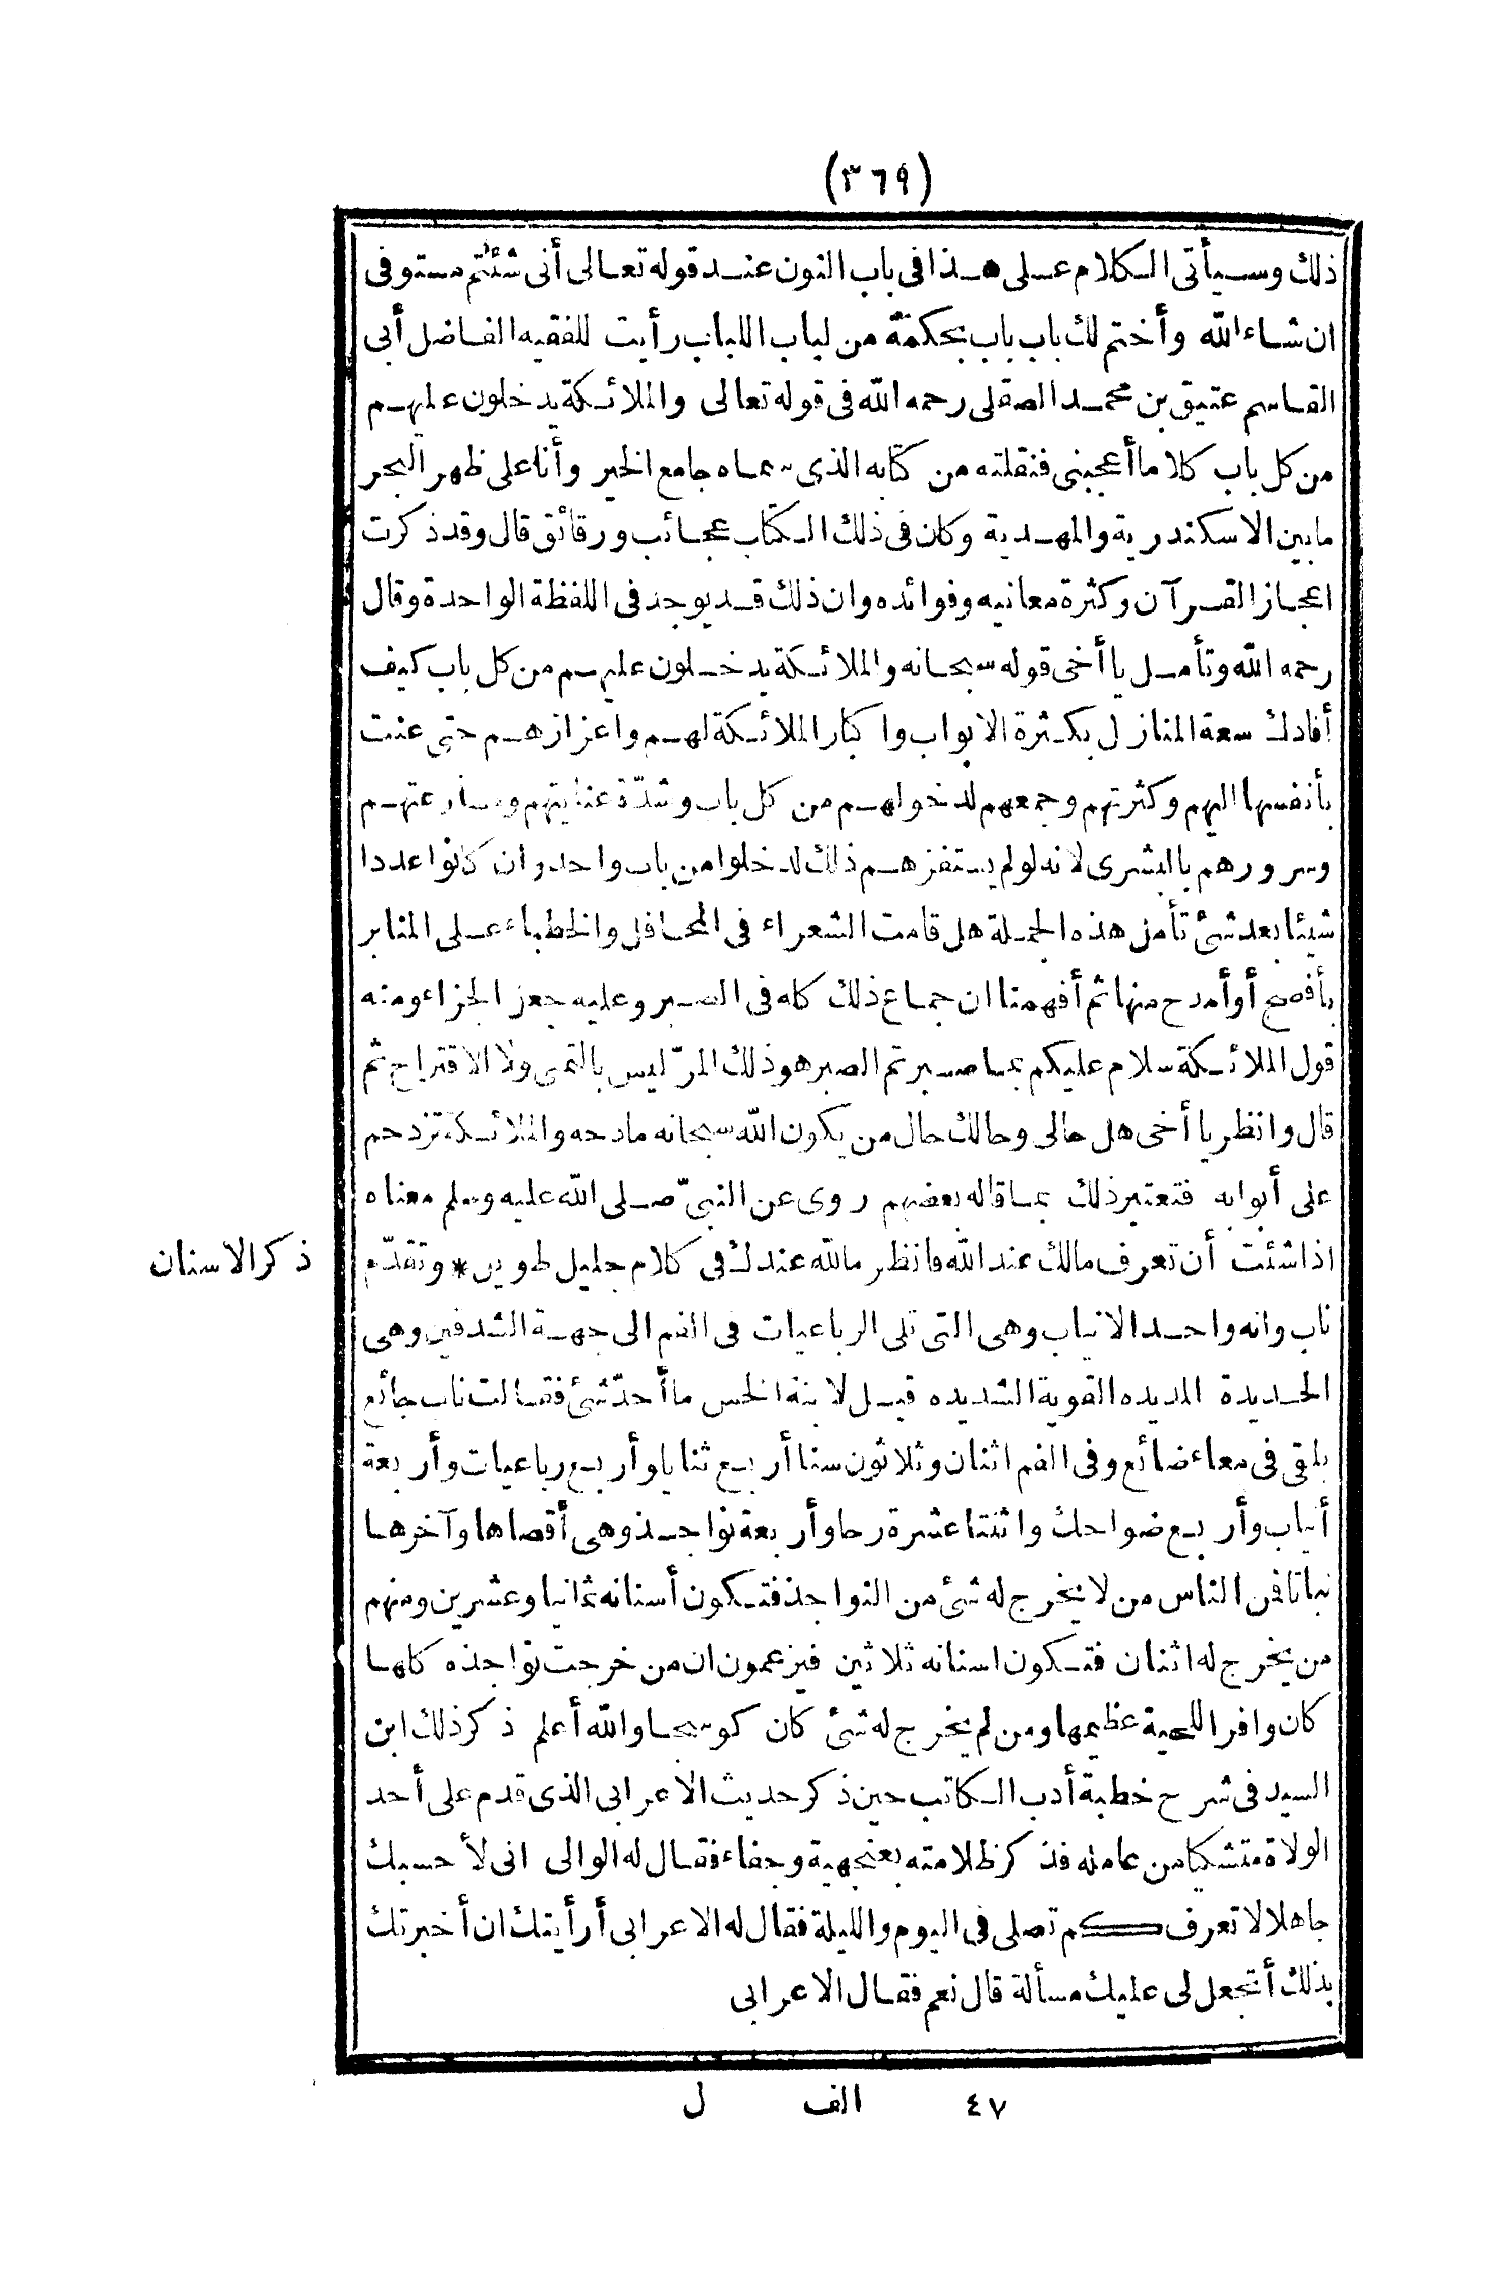 (٣٦٩)
ذلك وسيأتى الكلام على هذا فى باب النون عند قوله تعالى أنى شئتم مستوفى
ان شاء الله وأختم لك باب باب بحكمة من لباب اللباب رأيت للفقيه الفاضل أبى
القاسم عتيق بن محمد الصقلى رحمه الله فى قوله تعالى والملائكة يدخلون عليهم
من كل باب كلاما أعجبنى فنقلته من كتابه الذى سماه جامع الخير وأنا على ظهر البحر
مابين الاسكندرية والمهدية وكان فى ذلك الكتاب عجائب ورقائق قال وقد ذكرت
اعجاز القرآن وكثرة معانيه وفوائده وان ذلك قد يوجد فى اللفظة الواحدة وقال
رحمه الله وتأمل يا أخى قوله سبحانه والملائكة يدخلون عليهم من كل باب كيف
أفادك سعة المنازل بكثرة الابواب واكبار الملائكة لهم واعزازهم حتى عنت
بأنفسها اليهم وكثرتهم وجمعهم لدخولهم من كل باب وشدّة عنايتهم ومسارعتهم
وسرورهم بالبشرى لانه لو لم يستفزهم ذلك لدخلوا من باب واحد وان كانوا عددا
شيئا بعد شئ تأمل هذه الجملة هل قامت الشعراء فى المحافل والخطباء على المنابر
بأفصح أو أمدح منها ثم أفهمنا ان جماع ذلك كله فى الصبر وعليه جعل الجزاء ومنه
قول الملائكة سلام عليكم بما صبرتم الصبر هو ذلك المرّ ليس بالتمنى ولا الاقتراح ثم
قال وانظر يا أخى هل حالى وحالك حال من يكون الله سبحانه مادحه والملائكة تزدحم
على أبوابه فتعتبر ذلك بما قاله بعضهم روى عن النبىّ صلى الله عليه وسلم معناه
اذا شئت أن تعرف مالك عند الله فانظر مالله عندك فى كلام جليل طويل * وتقدّم
ذكر الاسنان
ناب وانه واحد الانياب وهى التى تلى الرباعيات فى الفم الى جهة الشدقين وهى
الحديدة المديده القوية الشديده قيل لابنة الخس ما أحدّ شئ فقالت ناب جائع
يلقى فى معاء ضائع وفى الفم اثنان وثلاثون سنا أربع ثنايا وأربع رباعيات وأربعة
أنياب وأربع ضواحك واثنتا عشرة رحا وأربعة نواجذ وهى أقصاها وآخرها
نباتا فن الناس من لا يخرج له شئ من النواجذ فتكون أسنانه ثمانيا وعشرين ومنهم
من يخرج له اثنان فتكون اسنانه ثلاثين فيزعمون ان من خرجت نواجذه كلها
كان وافر اللحية عظيمها ومن لم يخرج له شئ كان كوسجا والله أعلم ذكر ذلك ابن
السيد فى شرح خطبة أدب الكاتب حين ذكر حديث الاعرابى الذى قدم على أحد
الولاة متشكيا من عامله فذكر ظلامته بعنجهية وجفاء فقال له الوالى انى لأحسبك
جاهلا لا تعرف كم تصلى فى اليوم والليلة فقال له الاعرابى أرأيتك ان أخبرتك
بذلك أتجعل لى عليك مسألة قال نعم فقال الاعرابى
٤٧ الف ل